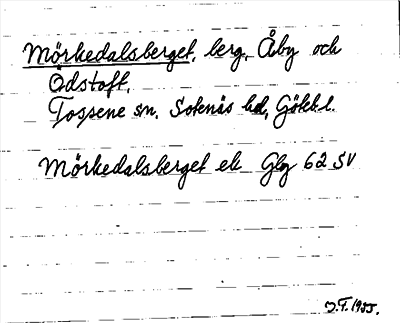 Mörkedalsberget, berg, Åby och
Ödstoft,
Tossene sn, Sotenäs hd, Götebl.
Mörkedalsberget ek Glg 62 SV
J.F. 1955.